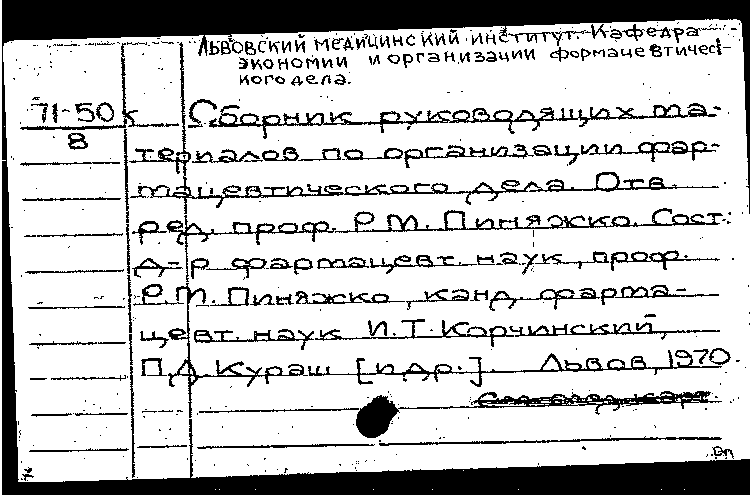 Львовский медицинский институт. Кафедра
экономии и организации формацевтичес-
кого дела.
71-50к Сборник руководящих ма-
8
териалов по организации фар-
мацевтического дела. Отв.
ред. проф. Р.М. Пиняжко. Сост.:
д-р фармацевт. наук, проф.
Р.М. Пиняжко, канд. фарма-
цевт. наук И.Т. Корчинский,
П.Д. Кураш [и др.]. Львов, 1970.